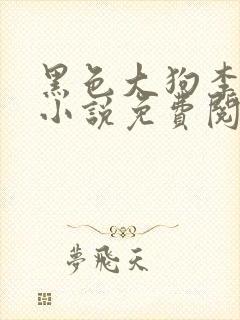 黑色大狗李
小说免費閱
夢飛天